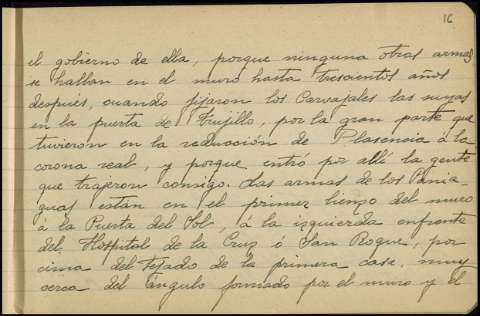 16
el gobierno de ella, porque ninguna otras armas
se hallan en el muro hasta trescientos años
después, cuando fijaron los Carvajales las suyas
en la puerta de Trujillo, por la gran parte que
tuvieron en la reducción de Plasencia á la
corona real, y porque entró por allí la gente
que trajeron consigo. Las armas de los Pania-
guas están en el primer lienzo del muro
á la Puerta del Sol, á la izquierda enfrente
del Hospital de la Cruz ó San Roque, por
cima del tejado de la primera casa, muy
cerca del ángulo formado por el muro y el